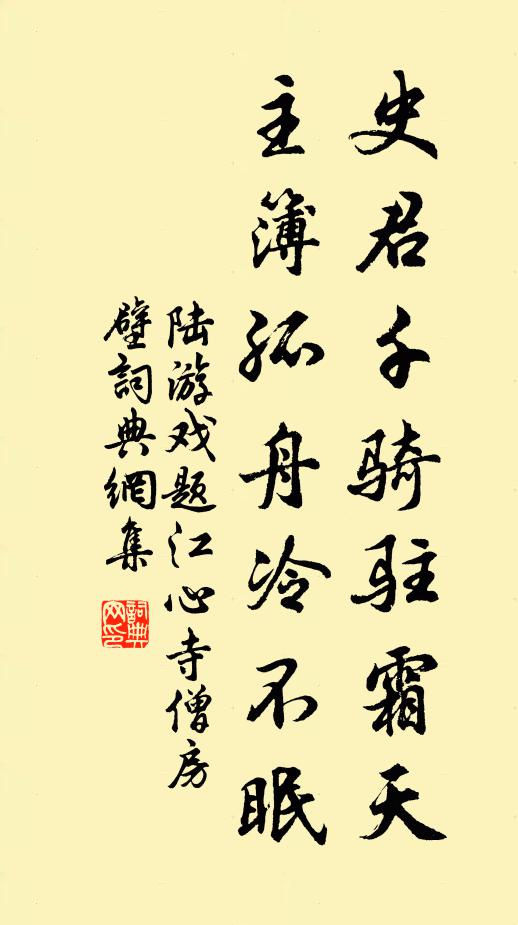 史君千骑驻霜天
主簿孤舟冷不眠
陆游戏题江心寺僧房
壁詞典網集
詞典
网印